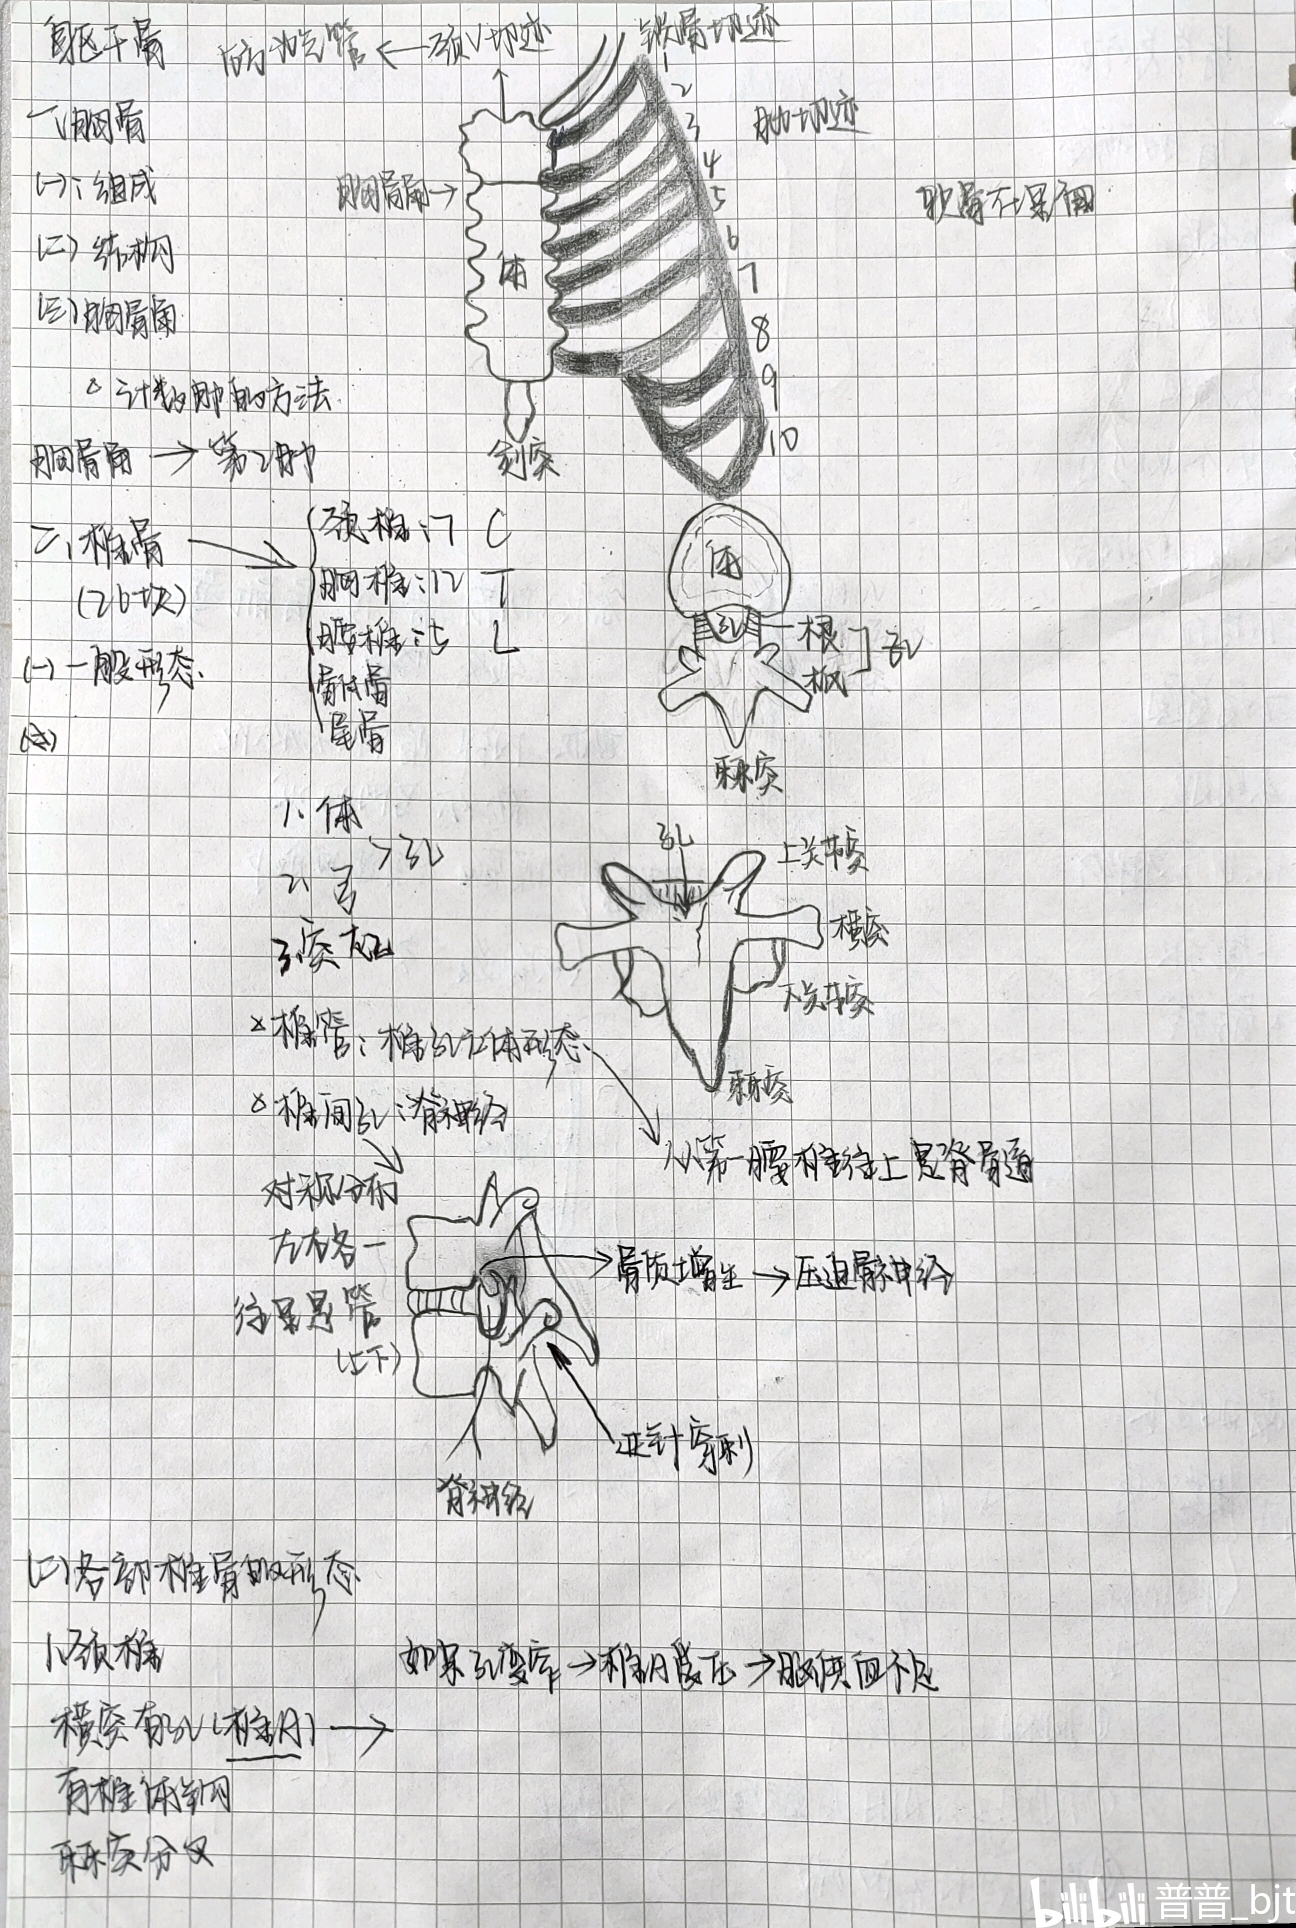 躯干骨
后方:气管 ← 颈V切迹
锁骨切迹
1
2
3
4
5
6
7
8
9
10
一、胸骨
肋切迹
(一):组成
胸骨角→
软骨在里侧
(二)结构
体
(三)胸骨角
计数肋的方法
胸骨角→第2肋
剑突
二、椎骨
(26块)
颈椎:7 C
胸椎:12 T
腰椎:5 L
骶骨
尾骨
体
孔
根
板
弓
棘突
(一)一般形态
1、体
2、弓
>孔
3、突起
孔
上关节突
横突
下关节突
棘突
椎管:椎孔立体形态
椎间孔:脊神经
从第一腰椎往上是脊骨道
对称分布
左右各一
往里是管
(上下)
骨质增生→压迫骨神经
穿刺
脊神经
(二)各部椎骨的形态
1、颈椎
如果孔变窄→椎A受压→脑供血不足
横突有孔(椎A)→
有椎体钩
棘突分叉
bilibili 普普_bjt